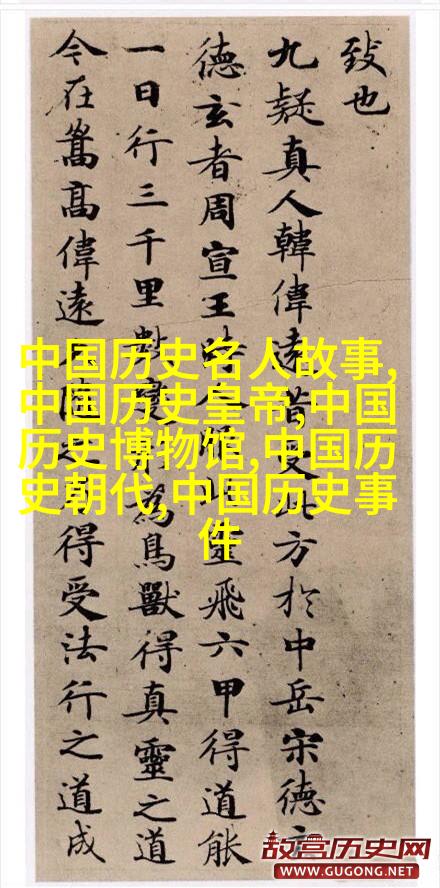 致也
九疑真人韓偉遠昔受此方於中岳宋德玄
德玄者周宣王時人服此靈飛六甲得道能
一日行三千里數變形為鳥獸得真靈之道
今在嵩高偉遠久隨之乃得受法行之道成
中国历史名人故事,
中国历史皇帝,中国
历史博物馆,中国历
史朝代,中国历史事
件
故宫历史网
WWW.GUGONG.NET